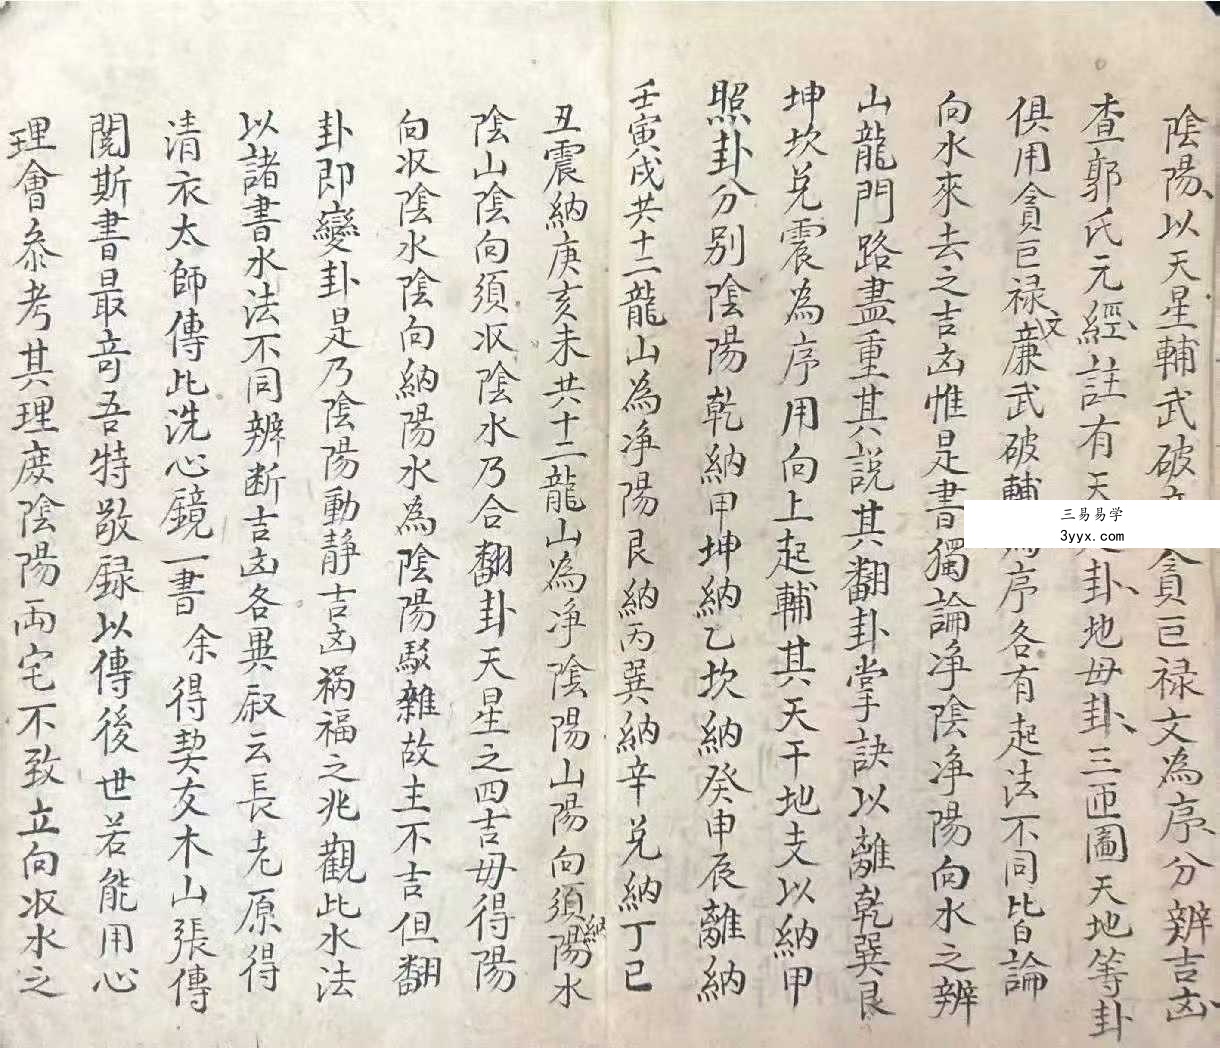 陰陽以天星輔武破貪巨禄文為序分辨吉凶
查郭氏元經註有天卦地毋卦三匝圖天地等卦
俱用貪巨禄文蔗武破輔序各有起法不同皆論
向水來去之吉凶惟是書獨論净陰净陽向水之辨
山龍門路盡重其説其翻卦掌訣以離乾巽艮
坤坎兑震為序用向上起輔其天干地支以納甲
照卦分别陰陽乾納甲坤納乙坎納癸申辰離納
壬寅戌共十二龍山為净陽艮納丙巽納辛兑納丁巳
丑震納庚亥未共十二龍山為净陰陽山陽向須納陽水
陰山陰向須収陰水乃合翻卦天星之四吉毋得陽
向収陰水陰向納陽水為陰陽駁雜故主不吉但翻
卦即變卦是乃陰陽動静吉凶祸福之兆觀此水法
以諸書水法不同辨断吉凶各異叔云長老原得
清衣太師傳此洗心鏡一書余得契友木山張傳
閲斯書最竒吾特敬録以傳後世若能用心
理會叅考其理庶陰陽両宅不致立向収水之
三易易学
3yyx.com